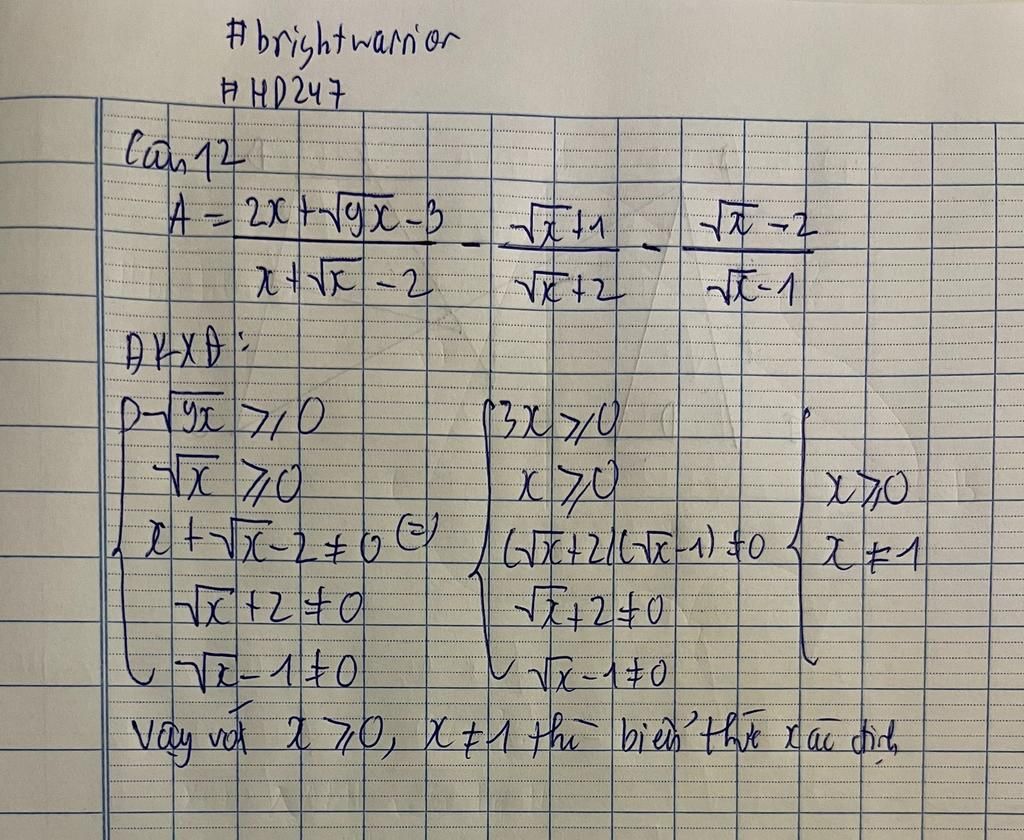 #brightwarrior
#HD247
Câu 12
A = \frac{2x+\sqrt{9x}-3}{x+\sqrt{x}-2} - \frac{\sqrt{x}+1}{\sqrt{x}+2} - \frac{\sqrt{x}-2}{\sqrt{x}-1}
ĐKXĐ:
\sqrt{9x} ≥ 0 3x ≥ 0
\sqrt{x} ≥ 0 x ≥ 0 x ≥ 0
x + \sqrt{x} - 2 ≠ 0 (=) (\sqrt{x}+2)(\sqrt{x}-1) ≠ 0 x ≠ 1
\sqrt{x} + 2 ≠ 0 \sqrt{x} + 2 ≠ 0
\sqrt{x} - 1 ≠ 0 \sqrt{x} - 1 ≠ 0
Vậy với x ≥ 0, x ≠ 1 thì biểu thức xác định